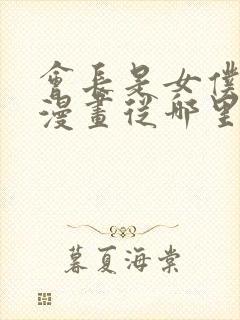 會長是女僕
漫畫從哪里
暮夏海棠